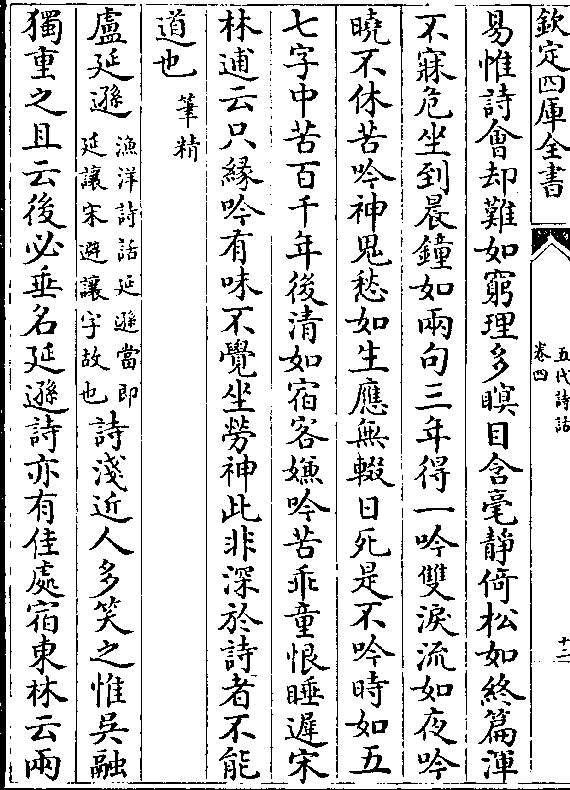 欽定四庫全書
五代詩話
卷四
十二
易惟詩會却難如窮理多瞑目含毫靜倚松如終篇渾
不寐危坐到晨鐘如兩句三年得一吟雙淚流如夜吟
曉不休苦吟神鬼愁如生應無輟日死是不吟時如五
七字中苦百千年後清如宿客嫌吟苦乖童恨睡遲宋
林逋云只緣吟有味不覺坐勞神此非深於詩者不能
道也筆精
盧延遜漁洋詩話延遜當即延讓宋避讓字故也詩淺近人多笑之惟吳融
獨重之且云後必垂名延遜詩亦有佳處宿東林云兩